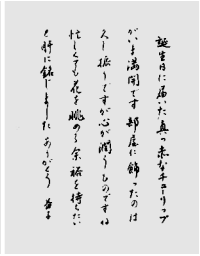 誕生日に届いた真っ赤なチューリップ
がいま満開です 部屋に飾ったのは
久し振りですが心が潤うものですね
忙しくても花を眺める余裕を持ちたい
と肝に銘じました ありがとう 益子